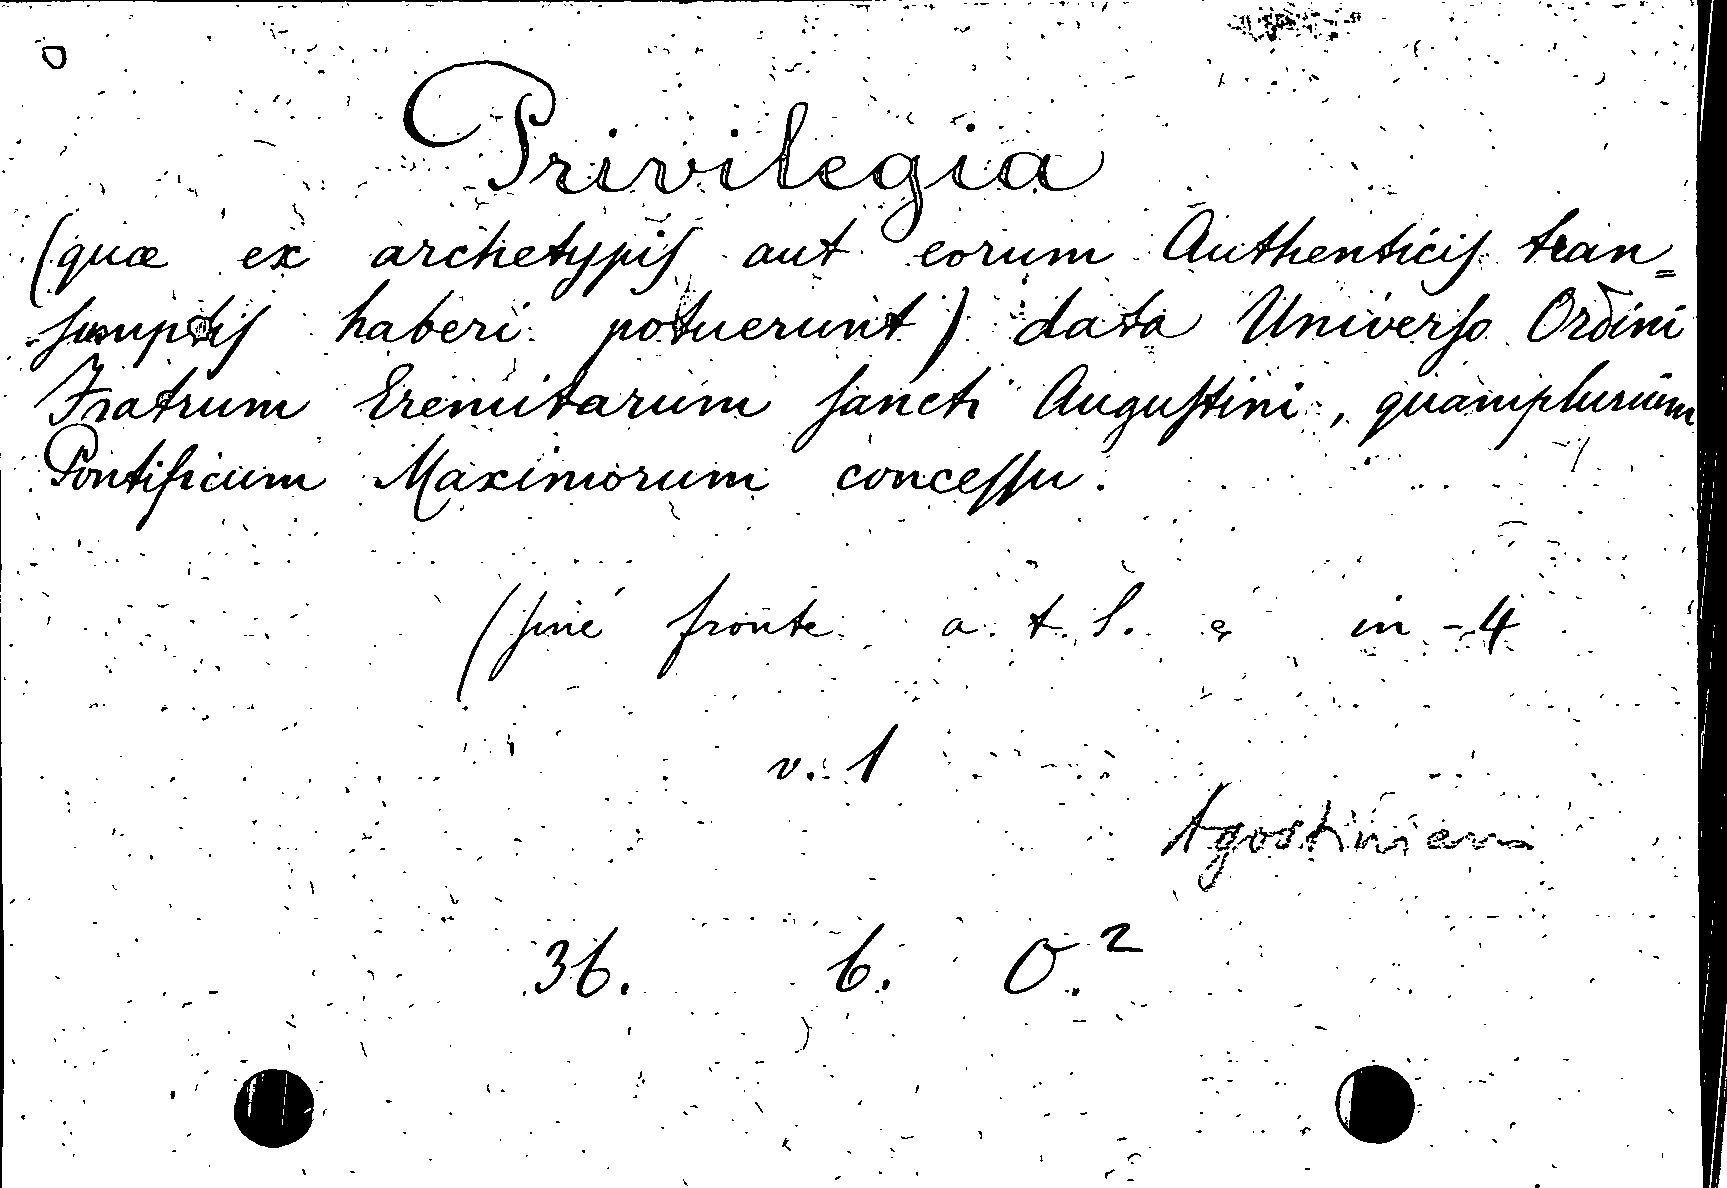 Privilegia
(quæ ex archetypis aut eorum Authenticis tran=
sumptis haberi potuerunt) data Universo Ordini
Fratrum Eremitarum sancti Augustini, quamplurium
Pontificum Maximorum concessu.
(sine fronte a. t. l. e in-4
v. 1
Agostiniens
36. 6. O.²